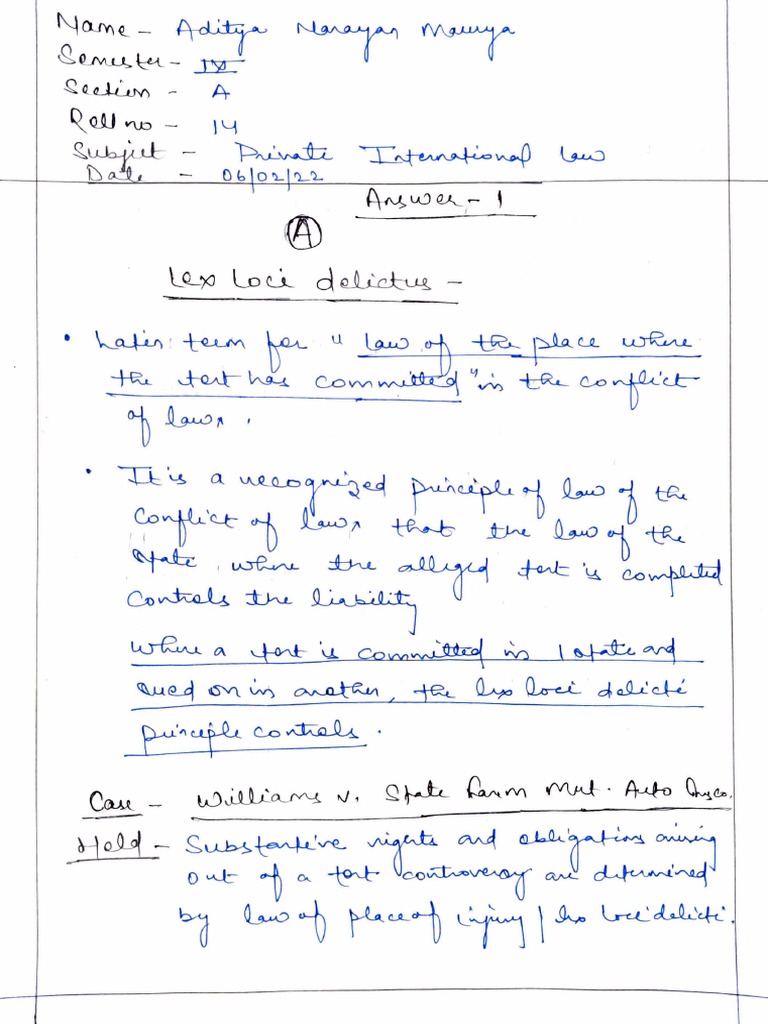 Name - Aditya Narayan Maurya
Semester - IX
Section - A
Roll no - 14
Subject - Private International law
Date - 06/02/22
Answer - 1
A
Lex Loci delictus -
• Latin term for "law of the place where
the tort has committed" in the conflict
of laws.
• It is a recognized principle of law of the
conflict of laws that the law of the
state where the alleged tort is completed
controls the liability
where a tort is committed in 1 state and
sued on in another, the lex loci delicti
principle controls.
Case - Williams v. State Farm Mut. Auto Ins co.
Held - Substantive rights and obligations arising
out of a tort controversy are determined
by law of place of injury / lex loci delicti.